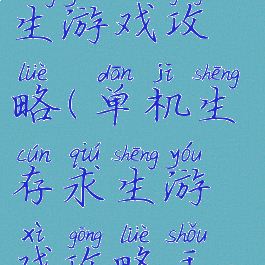 生游戏攻
lüè dān jī shēng
略(单机生
cún qiú shēng yóu
存求生游
xì gōng lüè shǒu
戏攻略手